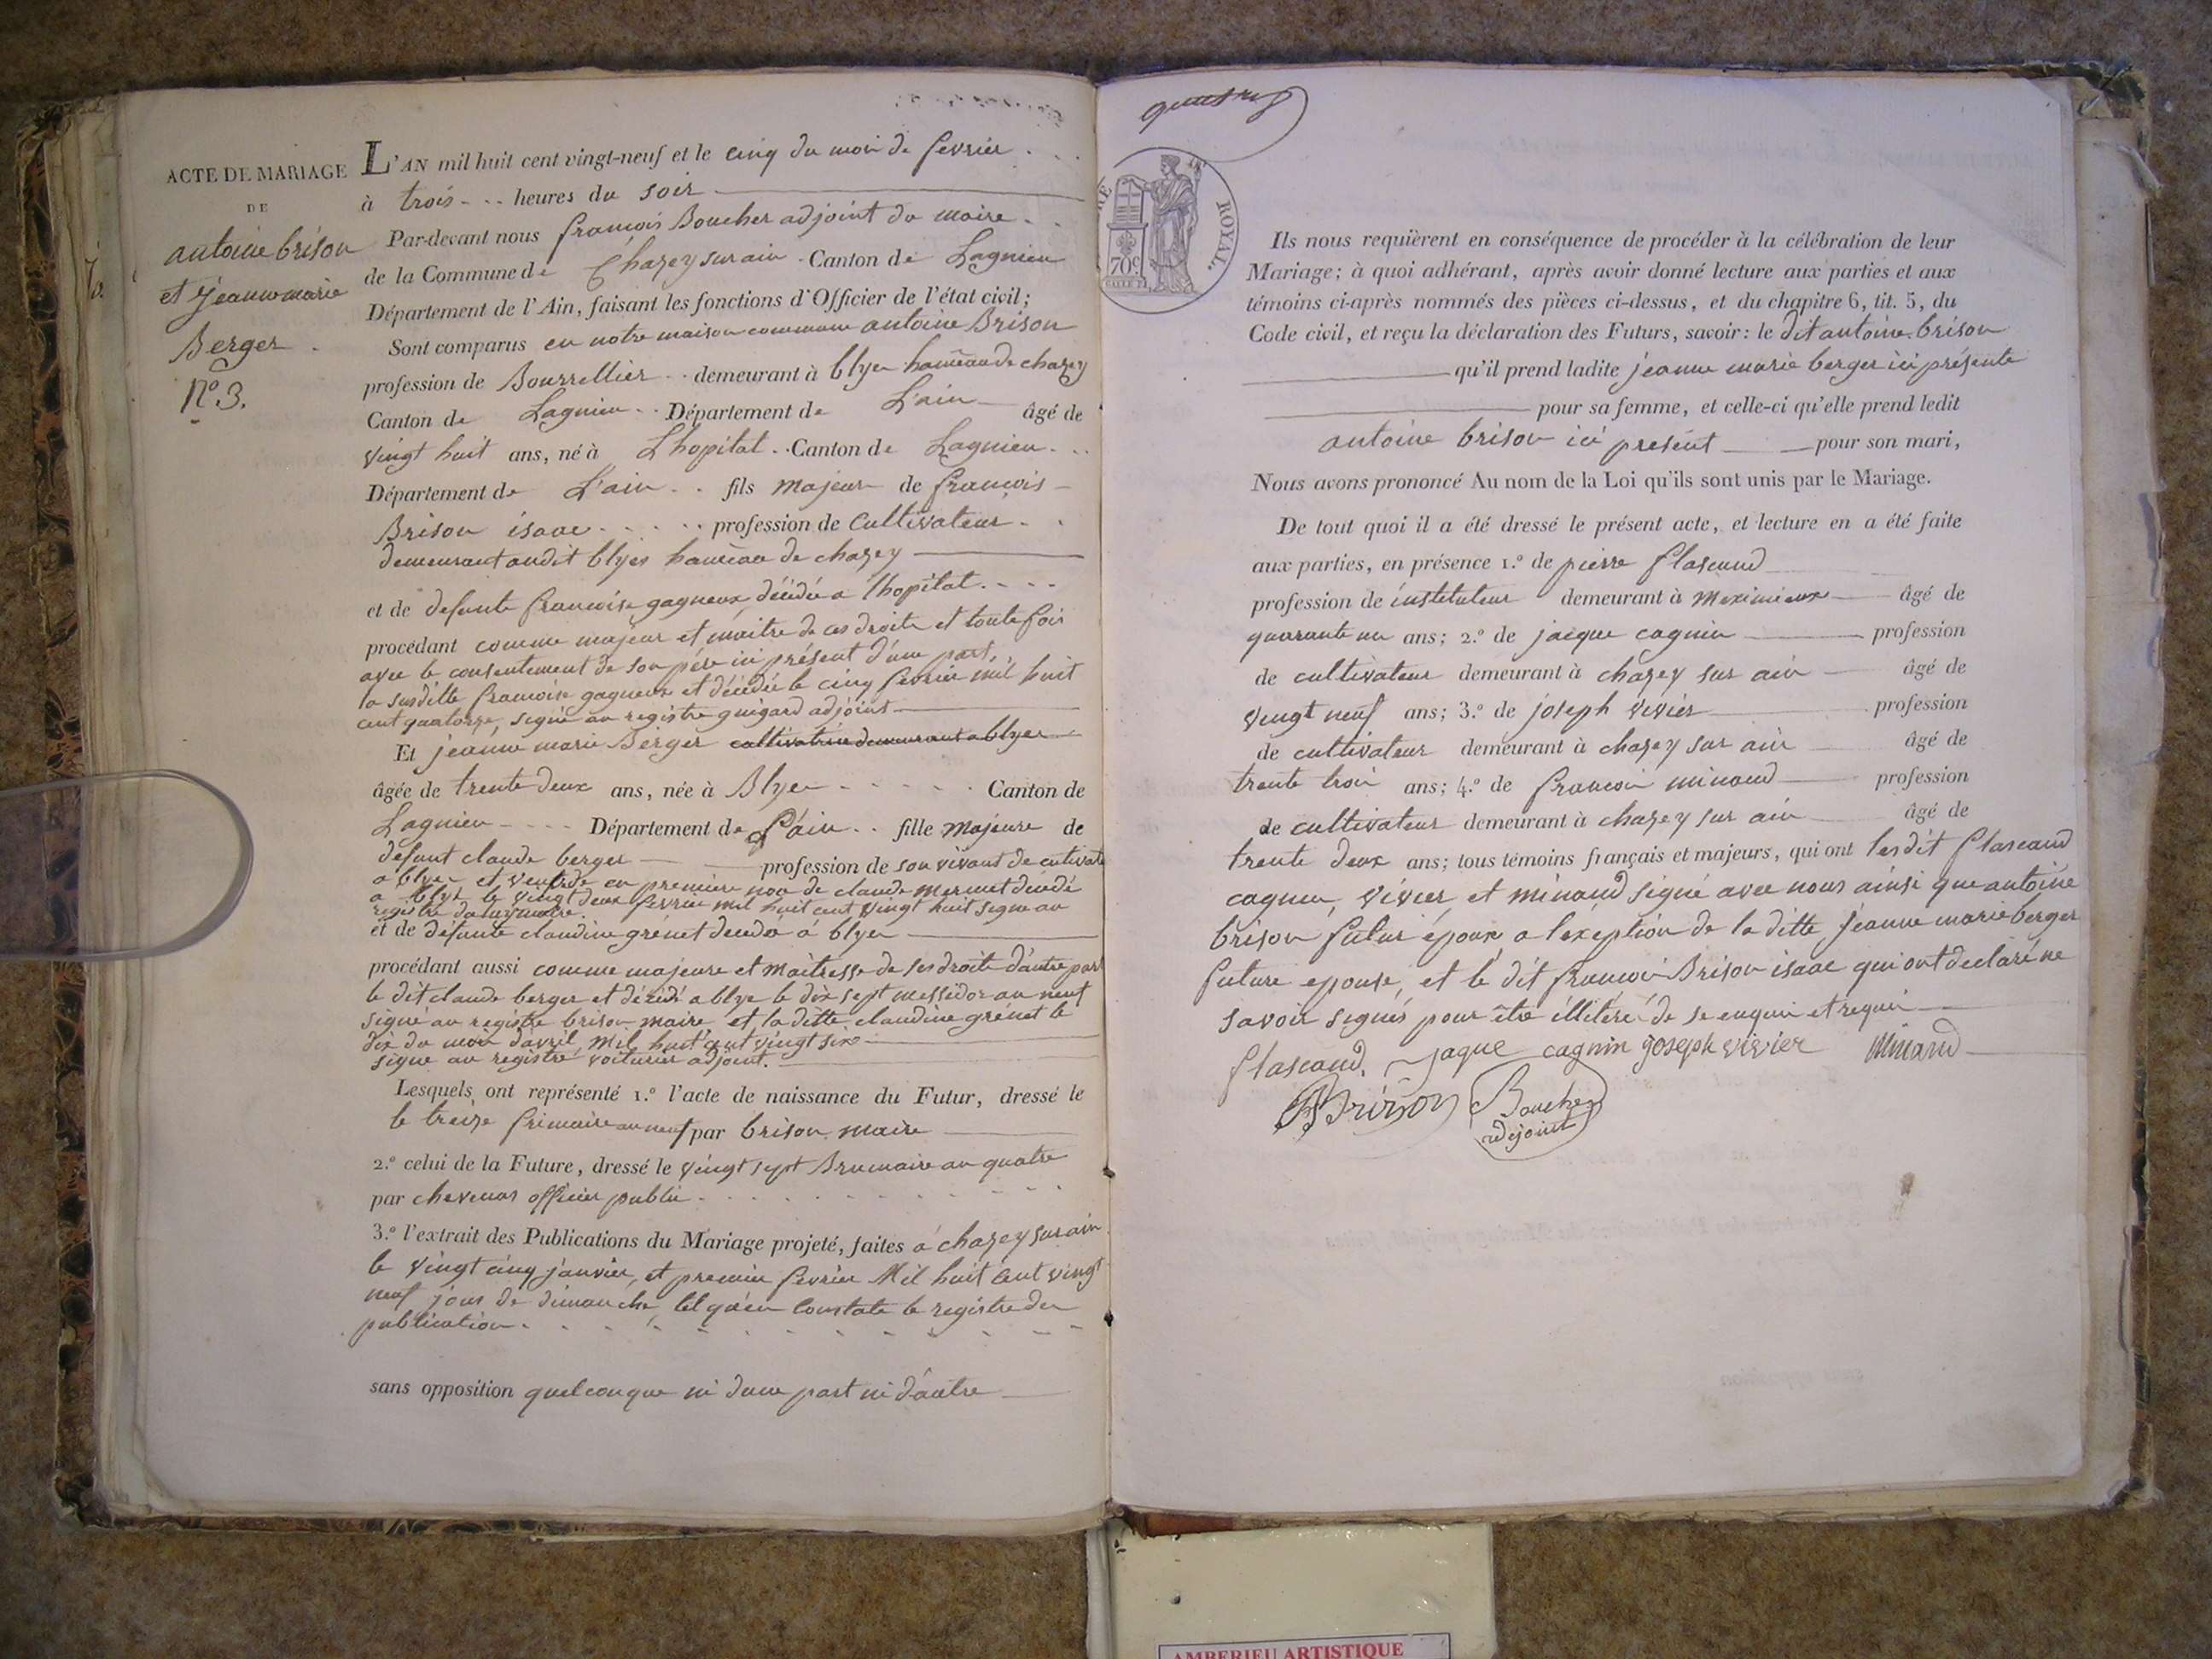 ACTE DE MARIAGE
DE
antoine brison
et jeanne marie
Berger
N.º 3.
L'AN mil huit cent vingt-neuf et le cinq du moi de fevrier
à trois heures du soir
Par-devant nous francois Boucher adjoint du maire
de la Commune de Chazey sur ain Canton de Lagnieu
Département de l'Ain, faisant les fonctions d'Officier de l'état civil;
Sont comparus en notre maison commune antoine Brison
profession de Bourrellier demeurant à blye hameau de chazey
Canton de Lagnieu Département de L'ain âgé de
vingt huit ans, né à Lhopital Canton de Lagnieu
Département de L'ain fils majeur de francois
Brison isaac profession de Cultivateur
demeurant audit blyes hameau de chazey
et de defunte francoise gagneux décédée a lhopital
procédant comme majeur et maitre de ces droite et toute fois
avec le consentement de son père ici présent d'une part,
la susditte francoise gagneux et décédée le cinq fevrier mil huit
cent quatorze, signé au registre guigard adjoint
Et jeanne marie Berger cultivatrice demeurant a blyer
âgée de trente deux ans, née à Blyer Canton de
Lagnieu Département de L'ain fille majeure de
defunt claude berger profession de son vivant de cutivate
a blyer et veuve de en premiere noce de claude mermet décédé
a blye le vingt deux fevrier mil huit cent vingt huit signe au
registre
et de défunte claudine grénet decedée á blye
procédant aussi comme majeure et maitresse de ses droite d'autre part
le dit claude berger et décédé a blye le dix sept messidor an neuf
signé au registre brison maire, et la ditte claudine grénet le
dix du mois d'avril, mil huit cent vingt six
signe au registre voiturier adjoint.
Lesquels ont représenté 1.º l'acte de naissance du Futur, dressé le
le treize frimaire an neuf par brison maire
2.º celui de la Future, dressé le vingt sept Brumaire an quatre
par chevenas officier public
3.º l'extrait des Publications du Mariage projeté, faites á chazey sur ain
le vingt cinq janvier, et premier fevrier Mil huit Cent vingt
neuf jour de dimanche, tel qu'en Constate le registre de
publication
sans opposition quelconque ni dune part ni d'autre
ROYAL.
70c
Ils nous requièrent en conséquence de procéder à la célébration de leur
Mariage; à quoi adhérant, après avoir donné lecture aux parties et aux
témoins ci-après nommés des pièces ci-dessus, et du chapitre 6, tit. 5, du
Code civil, et reçu la déclaration des Futurs, savoir: le dit antoine brison
qu'il prend ladite jeanne marie berger ici présente
pour sa femme, et celle-ci qu'elle prend ledit
antoine brison ici présent pour son mari,
Nous avons prononcé Au nom de la Loi qu'ils sont unis par le Mariage.
De tout quoi il a été dressé le présent acte, et lecture en a été faite
aux parties, en présence 1.º de pierre flascaud
profession de instituteur demeurant à meximieux âgé de
quarante un ans; 2.º de jacque cagnin profession
de cultivateur demeurant à chazey sur ain âgé de
vingt neuf ans; 3.º de joseph vivier profession
de cultivateur demeurant à chazey sur ain âgé de
trente troi ans; 4.º de francoi minaud profession
de cultivateur demeurant à chazey sur ain âgé de
trente deux ans; tous témoins français et majeurs, qui ont lesdit flascaud
cagnin, vivier, et minaud signé avec nous ainsi que antoine
brison futur époux a l'exeption de la ditte jeanne marie berger
future epouse, et le dit francoi Brison isaac qui ont declaré ne
savoir signés pour être illitéré de se enquin et requin
flascaud. jaque cagnin joseph vivier Minaud
Brison Boucher
adjoint
AMBERIEU ARTISTIQUE